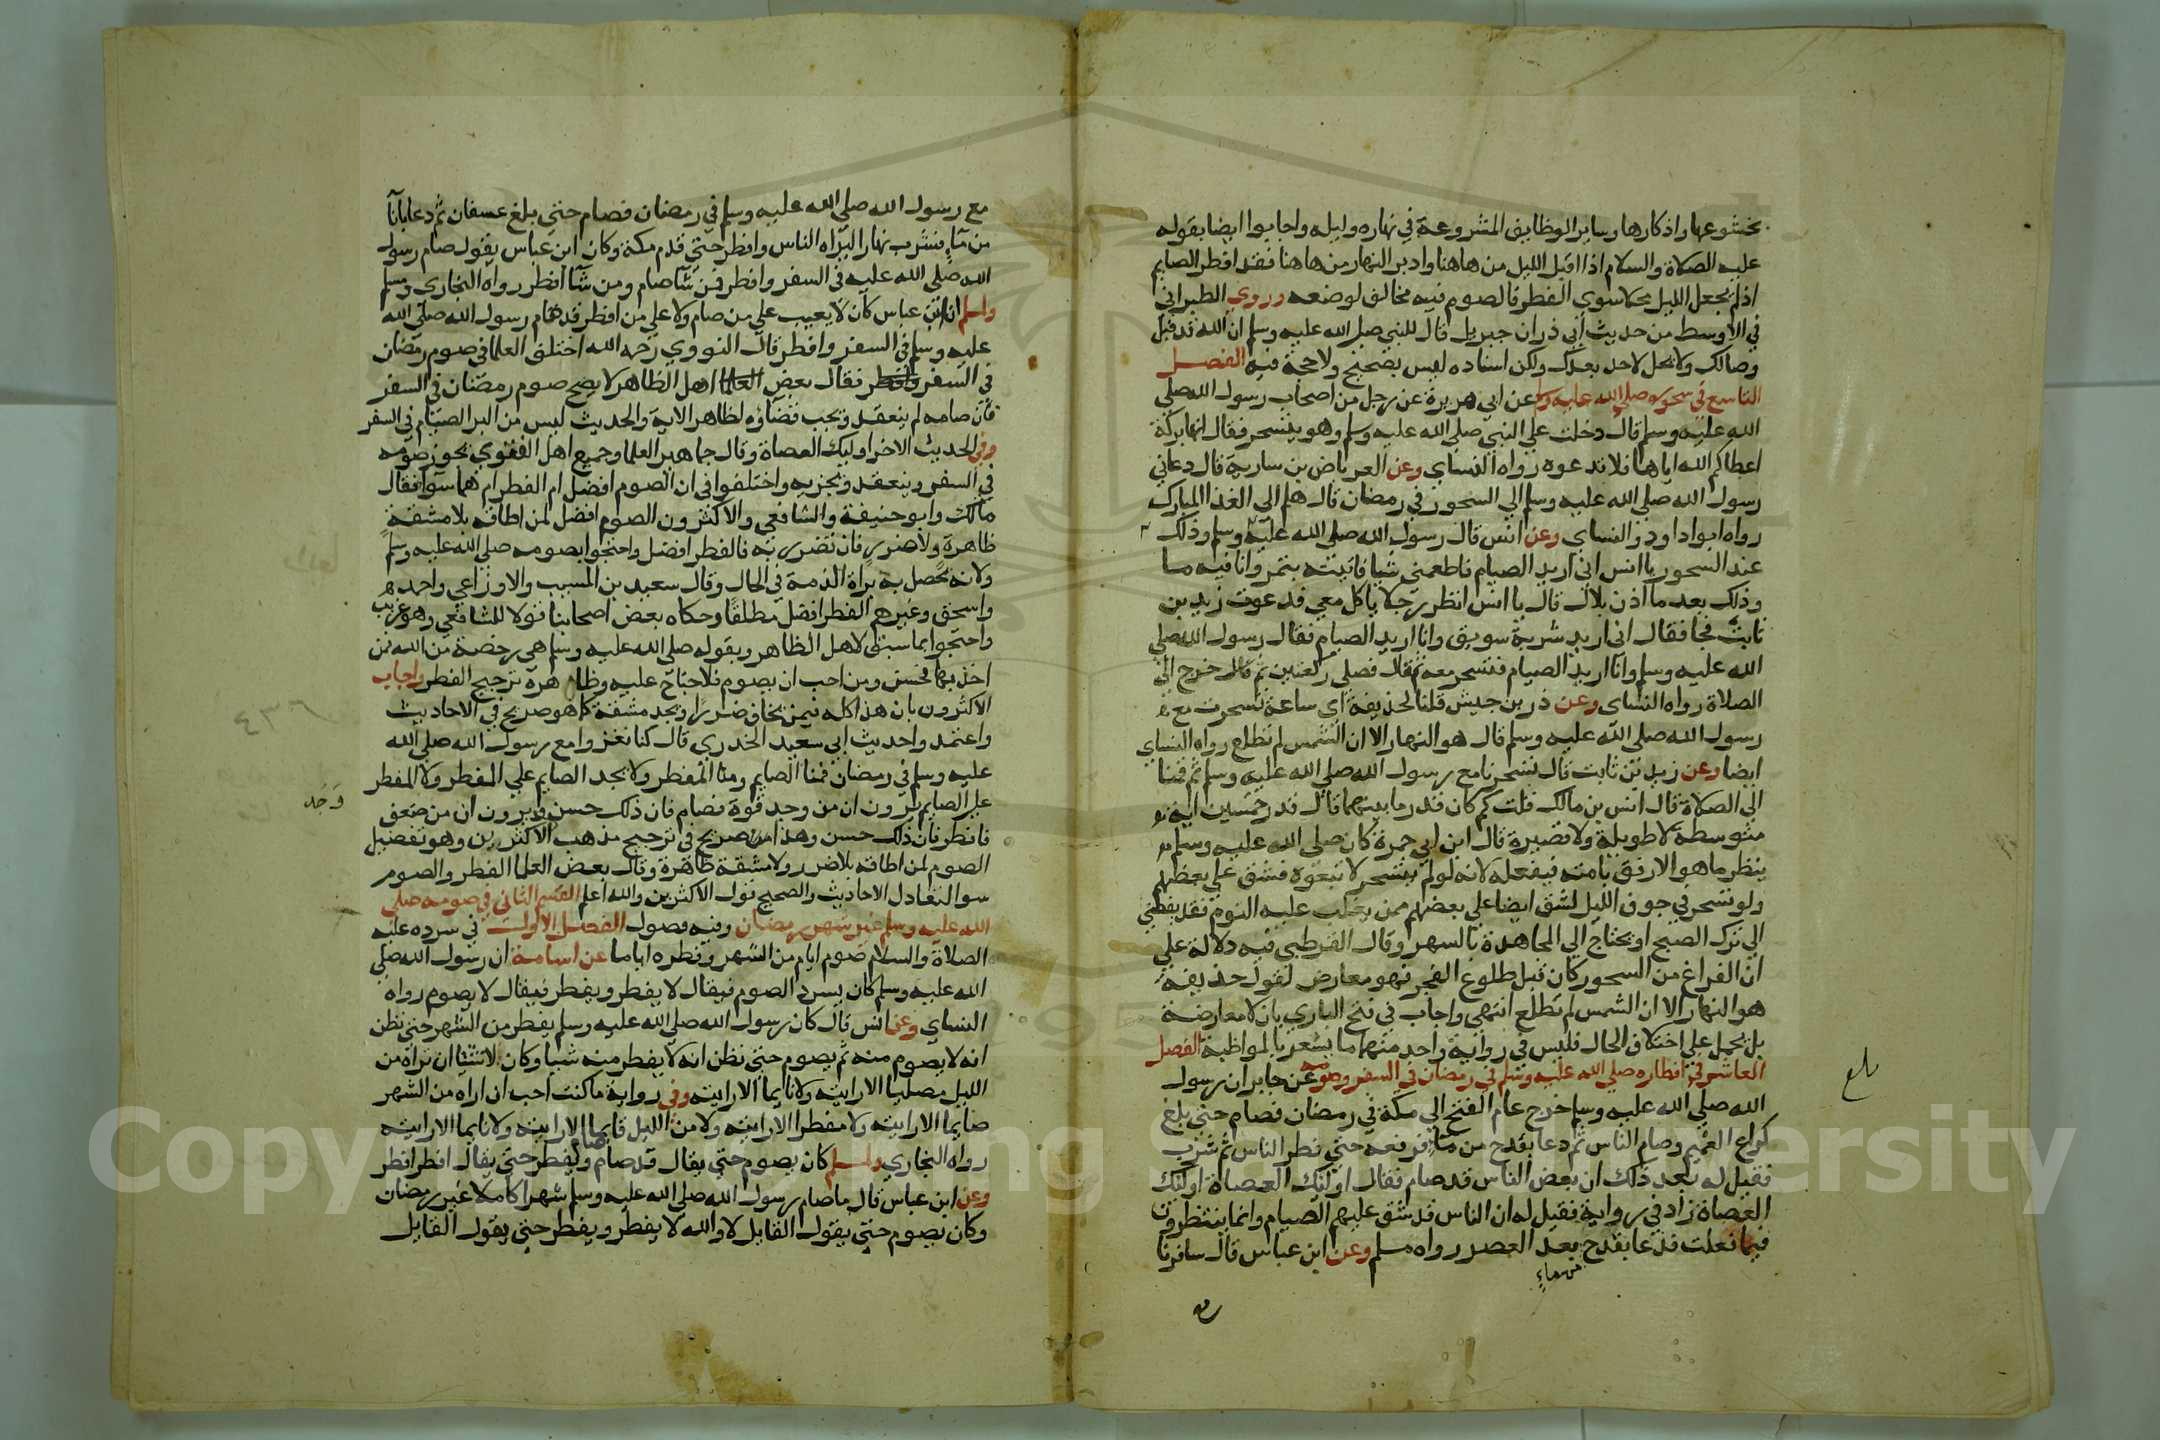 بخشوعها واذكارها وساير الوظايف المشروعة في نهاره وليله واجابوا ايضا بقوله
عليه الصلاة والسلام اذا اقبل الليل من هاهنا وادبر النهار من هاهنا فقد افطر الصايم
اذ لم يجعل الليل محلا سوي الفطر فالصوم فيه مخالف لوضعه وروي الطبراني
في الاوسط من حديث ابي ذر ان جبريل قال للنبي صلى الله عليه وسلم ان الله قد قبل
وصالك ولا يحل لاحد بعدك ولكن اسناده ليس بصحيح ولا حجة فيه الفصل
التاسع في سحوره صلى الله عليه وسلم عن ابي هريرة عن رجل من اصحاب رسول الله صلي
الله عليه وسلم قال دخلت علي النبي صلى الله عليه وسلم وهو يتسحر فقال انها بركة
اعطاكم الله اياها فلا تدعوه رواه النساي وعن العرباض بن سارية قال دعاني
رسول الله صلي الله عليه وسلم الي السحور في رمضان قال هلم الي الغدا المبارك
رواه ابو داود والنساي وعن انس قال رسول الله صلي الله عليه وسلم وذلك
عند السحور يا انس اني اريد الصيام فاطعمني شيا فاتيته بتمر وانا فيه ما
وذلك بعد ما اذن بلال قال يا انس انظر رجلا ياكل معي فدعوت زيد بن
ثابت فجا فقال اني اريد شربة سويق وانا اريد الصيام فقال رسول الله صلي
الله عليه وسلم وانا اريد الصيام فتسحر معه ثم قال فصلي ركعتين ثم خرج الي
الصلاة رواه النساي وعن ذر بن جيش قلنا لحذيفة اي ساعة تسحرت مع
رسول الله صلى الله عليه وسلم قال هو النهار الا ان الشمس لم تطلع رواه النساي
ايضا وعن زيد بن ثابت قال تسحرنا مع رسول الله صلي الله عليه وسلم ثم قمنا
الي الصلاة قال انس بن مالك قلت كم كان قدر ما بينهما قال قدر خمسين اية
متوسطة لا طويلة ولا قصيرة قال ابن ابي جمرة كان صلي الله عليه وسلم
ينظر ما هو الارفق بامته فيفعله لانه لو لم يتسحر لاتبعوه فشق علي بعضهم
ولو تسحر في جوف الليل لشق ايضا علي بعضهم ممن يغلب عليه النوم فقد يفضي
الي ترك الصبح او يحتاج الي المجاهدة بالسهر وقال القرطبي فيه دلالة علي
ان الفراغ من السحور كان قبل طلوع الفجر فهو معارض لقول حذيفة
هو النهار الا ان الشمس لم تطلع انتهي واجاب في فتح الباري بان لا معارضة
بل يحمل علي اختلاف الحال فليس في رواية واحد منهما ما يشعر بالمواظبة الفصل
العاشر في افطاره صلي الله عليه وسلم في رمضان في السفر وصومه عن جابر ان رسول
الله صلي الله عليه وسلم خرج عام الفتح الي مكة في رمضان فصام حتي بلغ
كراع الغميم وصام الناس ثم دعا بقدح من ما فرفعه حتي نظر الناس ثم شرب
فقيل له بعد ذلك ان بعض الناس قد صام فقال اوليك العصاة اوليك
العصاة زاد في رواية فقيل له ان الناس قد شق عليهم الصيام وانما ينتظرون
فيما فعلت فدعا بقدح بعد العصر رواه مسلم وعن ابن عباس قال سافرنا
من ماء
بلغ
مع رسول الله صلي الله عليه وسلم في رمضان فصام حتي بلغ عسفان ثم دعا بانآ
من مآء فشرب نهارا ليراه الناس وافطر حتي قدم مكة وكان ابن عباس يقول صام رسول
الله صلي الله عليه في السفر وافطر فمن شآ صام ومن شآ افطر رواه البخاري ومسلم
ولمسلم ان ابن عباس كان لا يعيب علي من صام ولا علي من افطر قد صام رسول الله صلي الله
عليه وسلم في السفر وافطر قال النووي رحمه الله اختلف العلما في صوم رمضان
في السفر وافطر فقال بعض العلما اهل الظاهر لا يصح صوم رمضان في السفر
فان صامه لم ينعقد ويجب قضاوه لظاهر الاية والحديث ليس من البر الصيام في السفر
وفي الحديث الاخر اوليك العصاة وقال جماهير العلما وجميع اهل الفتوي يجوز صومه
في السفر وينعقد ويجزيه واختلفوا في ان الصوم افضل ام الفطر ام هما سوا فقال
مالك وابو حنيفة والشافعي والاكثرون الصوم افضل لمن اطاقه بلا مشقة
ظاهرة ولا ضرر فان تضرر به فالفطر افضل واحتجوا بصومه صلي الله عليه وسلم
ولانه يحصل به براة الذمة في الحال وقال سعيد بن المسيب والاوزاعي واحمد
واسحق وغيرهم الفطر افضل مطلقا وحكاه بعض اصحابنا قولا للشافعي وهو غريب
واحتجوا بما سبق لاهل الظاهر وبقوله صلي الله عليه وسلم هي رخصة من الله فمن
اخذ بها فحسن ومن احب ان يصوم فلا جناح عليه وظاهرة ترجيح الفطر واجاب
الاكثرون بان هذا كله فيمن يخاف ضررا او يجد مشقة كما هو صريح في الاحاديث
واعتمدوا حديث ابي سعيد الخدري قال كنا نغزوا مع رسول الله صلي الله
عليه وسلم في رمضان فمنا الصايم ومنا المفطر ولا يجد الصايم علي المفطر ولا المفطر
علي الصايم يرون ان من وجد قوة فصام فان ذلك حسن ويرون ان من ضعف
وجد
فافطر فان ذلك حسن وهذا صريح في ترجيح مذهب الاكثرين وهو تفضيل
الصوم لمن اطاقه بلا ضرر ولا مشقة ظاهرة وقال بعض العلما الفطر والصوم
سوا لتعادل الاحاديث والصحيح قول الاكثرين والله اعلم القسم الثاني في صومه صلي
الله عليه وسلم غير شهر رمضان وفيه فصول الفصل الاول في سرده عليه
الصلاة والسلام صوم ايام من الشهر وفطره اياما عن اسامة ان رسول الله صلي
الله عليه وسلم كان يسرد الصوم فيقال لا يفطر ويفطر فيقال لا يصوم رواه
النساي وعن انس قال كان رسول الله صلي الله عليه وسلم يفطر من الشهر حتي نظن
انه لا يصوم منه ثم يصوم حتي نظن انه لا يفطر منه شيا وكان لا تشا ان تراه من
الليل مصليا الا رايته ولا نايما الا رايته وفي رواية ما كنت احب ان اراه من الشهر
صايما الا رايته ولا مفطرا الا رايته ولا من الليل قايما الا رايته ولا نايما الا رايته
رواه البخاري ولمسلم كان يصوم حتي يقال قد صام صام ويفطر حتي يقال افطر افطر
وعن ابن عباس قال ما صام رسول الله صلي الله عليه وسلم شهرا كاملا غير رمضان
وكان يصوم حتي يقول القايل لا والله لا يفطر ويفطر حتي يقول القايل